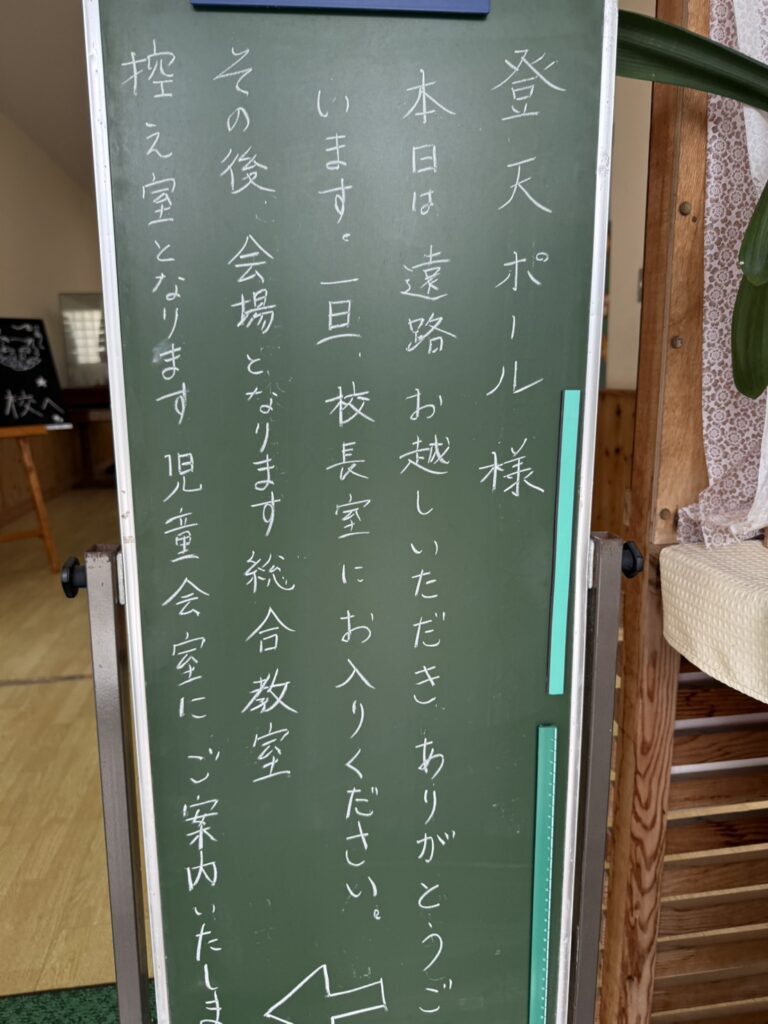 登天ポール様
本日は遠路お越しいただきありがとうご
います。一旦、校長室にお入りください。
その後、会場となります総合教室
控え室となります児童会室にご案内いたしま
校へ